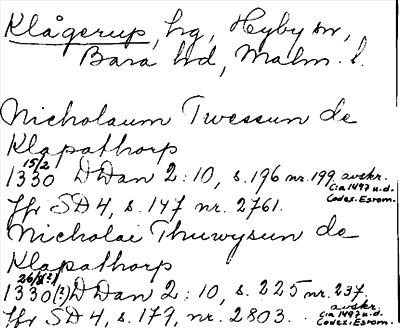 Klågerup, hg, Hyby sn,
Bara hd, Malm. l.
Nicholaum Twessun de
Klapathorp
15/2
1330 DDan 2:10, s. 196 nr. 199. avskr.
Cia 1497 u.d.
Codex. Esrom.
Jfr SD 4, s. 147 nr. 2761.
Nicholai Thuwysun de
Klapathorp
26/8(?)
1330(?) DDan 2:10, s. 225 nr. 237.
avskr.
Cia 1497 u.d.
Jfr SD 4, s. 179, nr. 2803. Codex. Esrom.